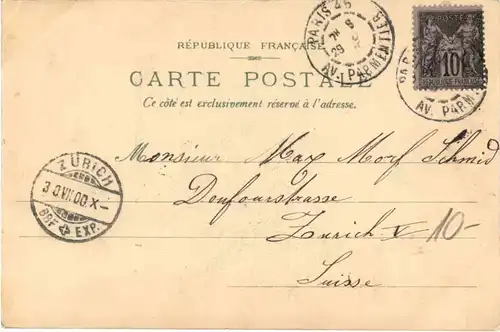 PARIS 46
AV. PARMENTIER
29
POSTE
10
RÉPUBLIQUE FRANÇAISE
AV. PARM
CARTE POSTALE
Ce côté est exclusivement réservé à l'adresse.
Monsieur Max Morf Schmid
ZÜRICH
30.VII.00.X-
BRF EXP.
Doufourstrasse
Zurich V 10-
Suisse